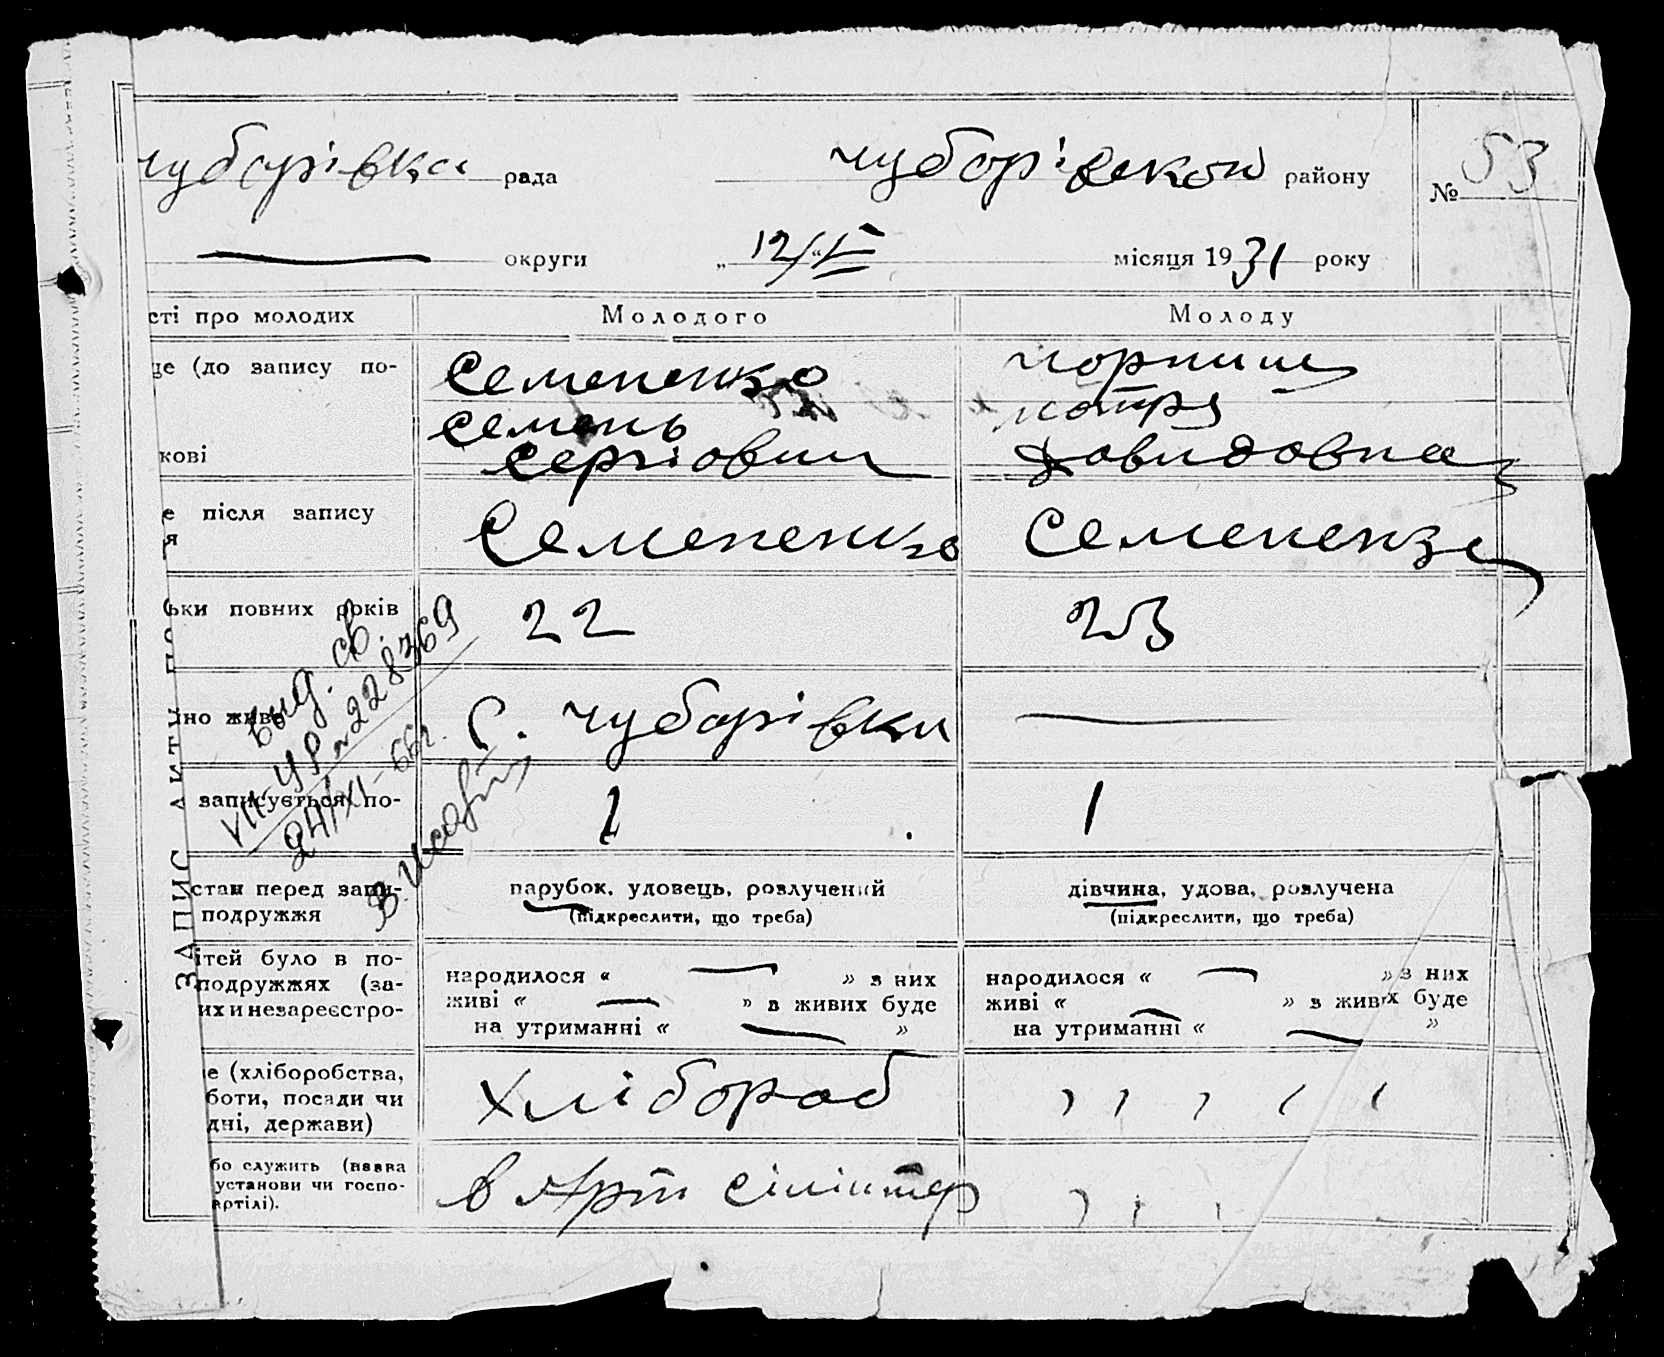 чубарівка рада чубарівськой району № 53
округи „ 12/V “ місяця 1931 року
сті про молодих Молодого Молоду
це (до запису по- Семененко чорниш
Семень
кові Сергіовиш Давидовна
е після запису Семененко Семененко
я
ьки повних років 22 23
вид. св.
VII-УР № 228369
24/XI-66г.
но живе С. чубарівки
записується по- 1 1
стан перед запи- парубок, удовець, розлучений дівчина, удова, розлучена
подружжя (підкреслити, що треба) (підкреслити, що треба)
ітей було в по- народилося « » з них народилося « » з них
подружжях (за- живі « » з живих буде живі « » з живих буде
их и незареєстро- на утриманні « » на утриманні « »
е (хліборобства, хлібороб
боти, посади чи
дні, держави)
бо служить (назва в Арт
установи чи госпо-
артілі).
ЗАПИС АКТУ ПО